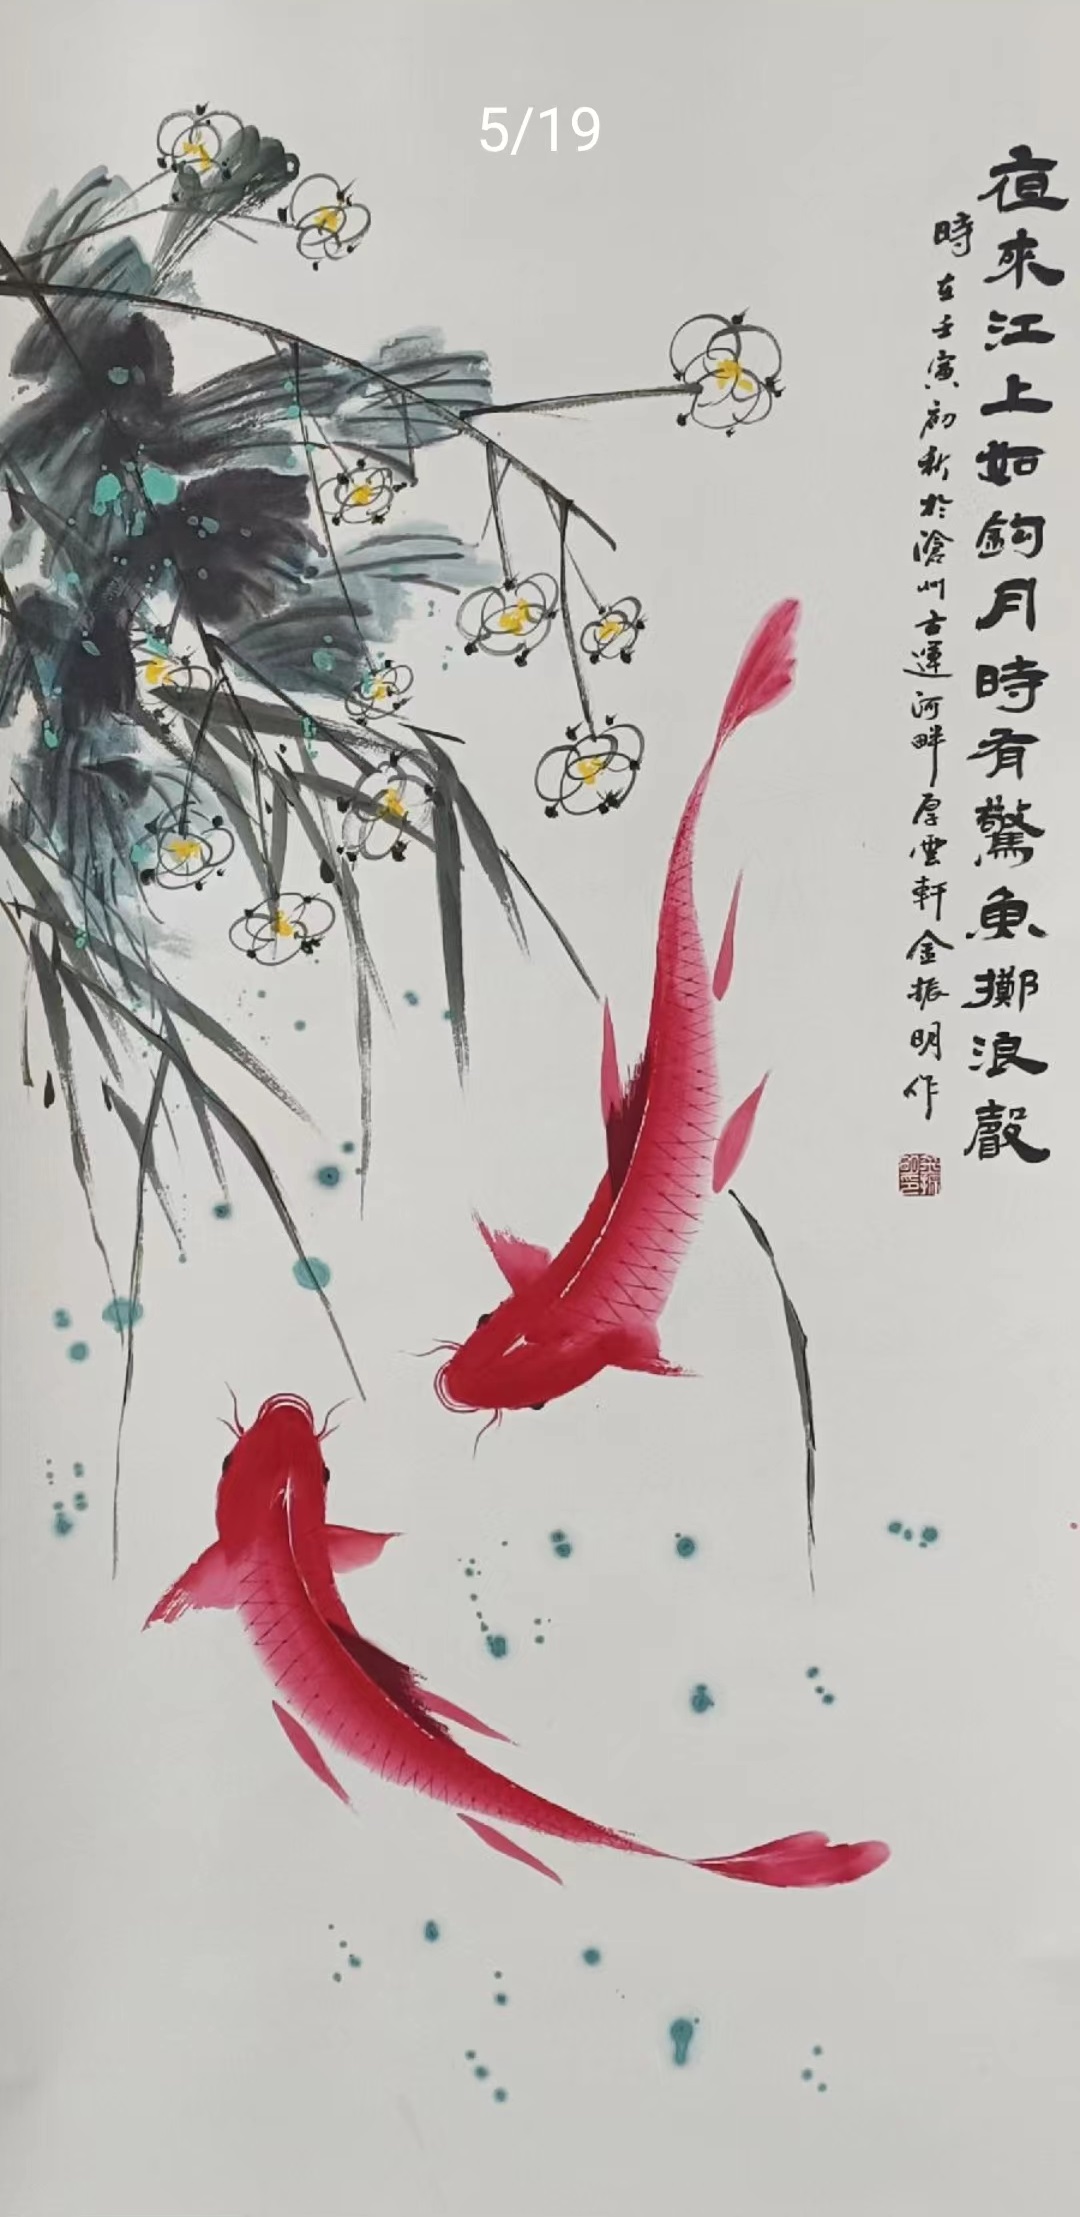 5/19
夜來江上如鈎月時有驚魚擲浪聲
時在壬寅初秋於滄州古運河畔厚雲軒金振明作